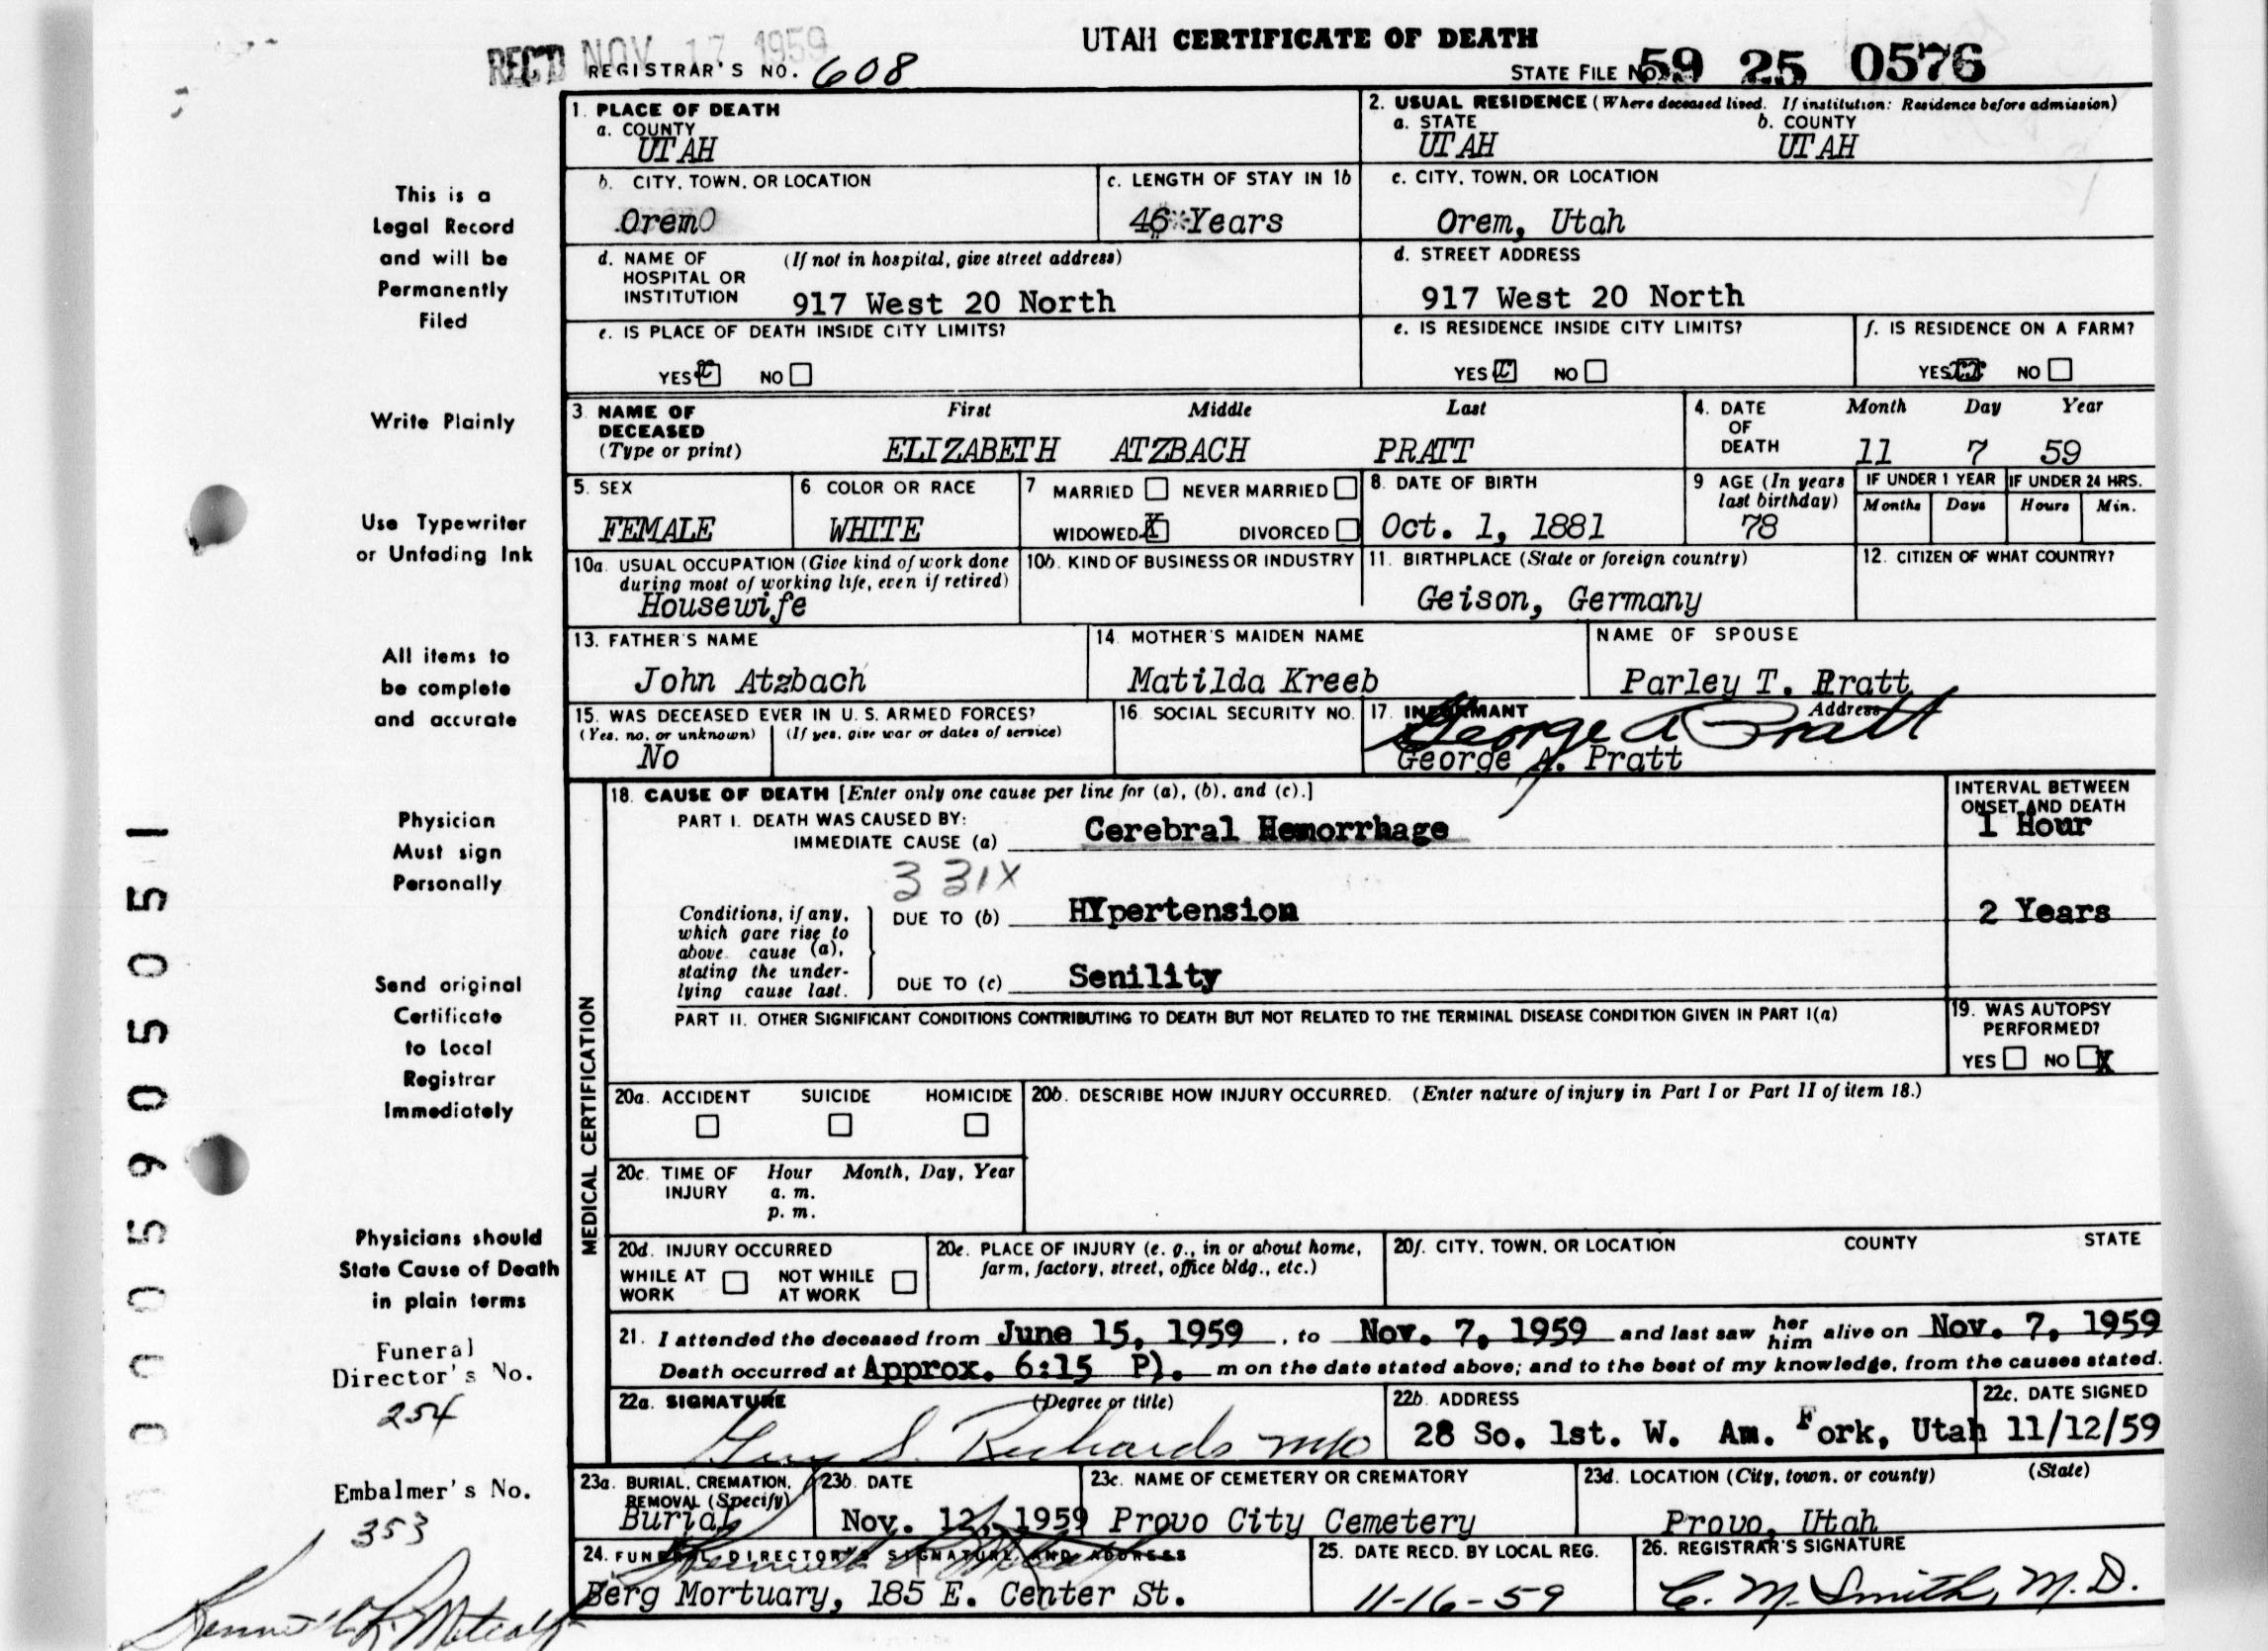 UTAH CERTIFICATE OF DEATH
REC'D NOV 17 1959
REGISTRAR'S NO. 608
STATE FILE NO. 59 25 0576
1. PLACE OF DEATH
a. COUNTY
UTAH
2. USUAL RESIDENCE (Where deceased lived. If institution: Residence before admission)
a. STATE b. COUNTY
UTAH UTAH
b. CITY, TOWN, OR LOCATION
Orem
c. LENGTH OF STAY IN 1b
46 Years
c. CITY, TOWN, OR LOCATION
Orem, Utah
d. NAME OF (If not in hospital, give street address)
HOSPITAL OR
INSTITUTION 917 West 20 North
d. STREET ADDRESS
917 West 20 North
e. IS PLACE OF DEATH INSIDE CITY LIMITS?
YES x NO
e. IS RESIDENCE INSIDE CITY LIMITS?
YES x NO
f. IS RESIDENCE ON A FARM?
YES xx NO
3. NAME OF DECEASED (Type or print)
First Middle Last
ELIZABETH ATZBACH PRATT
4. DATE OF DEATH
Month Day Year
11 7 59
5. SEX
FEMALE
6 COLOR OR RACE
WHITE
7 MARRIED NEVER MARRIED
WIDOWED X DIVORCED
8. DATE OF BIRTH
Oct. 1, 1881
9 AGE (In years last birthday)
78
IF UNDER 1 YEAR IF UNDER 24 HRS.
Months Days Hours Min.
10a. USUAL OCCUPATION (Give kind of work done
during most of working life, even if retired)
Housewife
10b. KIND OF BUSINESS OR INDUSTRY
11. BIRTHPLACE (State or foreign country)
Geison, Germany
12. CITIZEN OF WHAT COUNTRY?
13. FATHER'S NAME
John Atzbach
14. MOTHER'S MAIDEN NAME
Matilda Kreeb
NAME OF SPOUSE
Parley T. Pratt
15. WAS DECEASED EVER IN U. S. ARMED FORCES?
(Yes, no, or unknown) (If yes, give war or dates of service)
No
16. SOCIAL SECURITY NO.
17. INFORMANT Address
George A Pratt
George A. Pratt
MEDICAL CERTIFICATION
18. CAUSE OF DEATH [Enter only one cause per line for (a), (b), and (c).]
INTERVAL BETWEEN
ONSET AND DEATH
PART I. DEATH WAS CAUSED BY:
IMMEDIATE CAUSE (a) Cerebral Hemorrhage 1 Hour
331X
Conditions, if any,
which gave rise to
above cause (a),
stating the under-
lying cause last.
DUE TO (b) HYpertension 2 Years
DUE TO (c) Senility
PART II. OTHER SIGNIFICANT CONDITIONS CONTRIBUTING TO DEATH BUT NOT RELATED TO THE TERMINAL DISEASE CONDITION GIVEN IN PART I(a)
19. WAS AUTOPSY
PERFORMED?
YES NO X
20a. ACCIDENT SUICIDE HOMICIDE
20b. DESCRIBE HOW INJURY OCCURRED. (Enter nature of injury in Part I or Part II of item 18.)
20c. TIME OF INJURY Hour Month, Day, Year
a. m.
p. m.
20d. INJURY OCCURRED
WHILE AT WORK NOT WHILE AT WORK
20e. PLACE OF INJURY (e. g., in or about home,
farm, factory, street, office bldg., etc.)
20f. CITY, TOWN, OR LOCATION COUNTY STATE
21. I attended the deceased from June 15, 1959, to Nov. 7, 1959 and last saw her him alive on Nov. 7, 1959
Death occurred at Approx. 6:15 P). m on the date stated above; and to the best of my knowledge, from the causes stated.
22a. SIGNATURE (Degree or title)
Guy S. Richards MD
22b. ADDRESS
28 So. 1st. W. Am. Fork, Utah
22c. DATE SIGNED
11/12/59
23a. BURIAL, CREMATION,
REMOVAL (Specify)
Burial
23b. DATE
Nov. 12, 1959
23c. NAME OF CEMETERY OR CREMATORY
Provo City Cemetery
23d. LOCATION (City, town, or county) (State)
Provo, Utah
24. FUNERAL DIRECTOR'S SIGNATURE AND ADDRESS
Berg Mortuary, 185 E. Center St.
25. DATE RECD. BY LOCAL REG.
11-16-59
26. REGISTRAR'S SIGNATURE
C. M. Smith, M. D.
This is a
Legal Record
and will be
Permanently
Filed
Write Plainly
Use Typewriter
or Unfading Ink
All items to
be complete
and accurate
Physician
Must sign
Personally
Send original
Certificate
to Local
Registrar
Immediately
Physicians should
State Cause of Death
in plain terms
Funeral
Director's No.
254
Embalmer's No.
353
Kenneth R Metcalf
0005905051